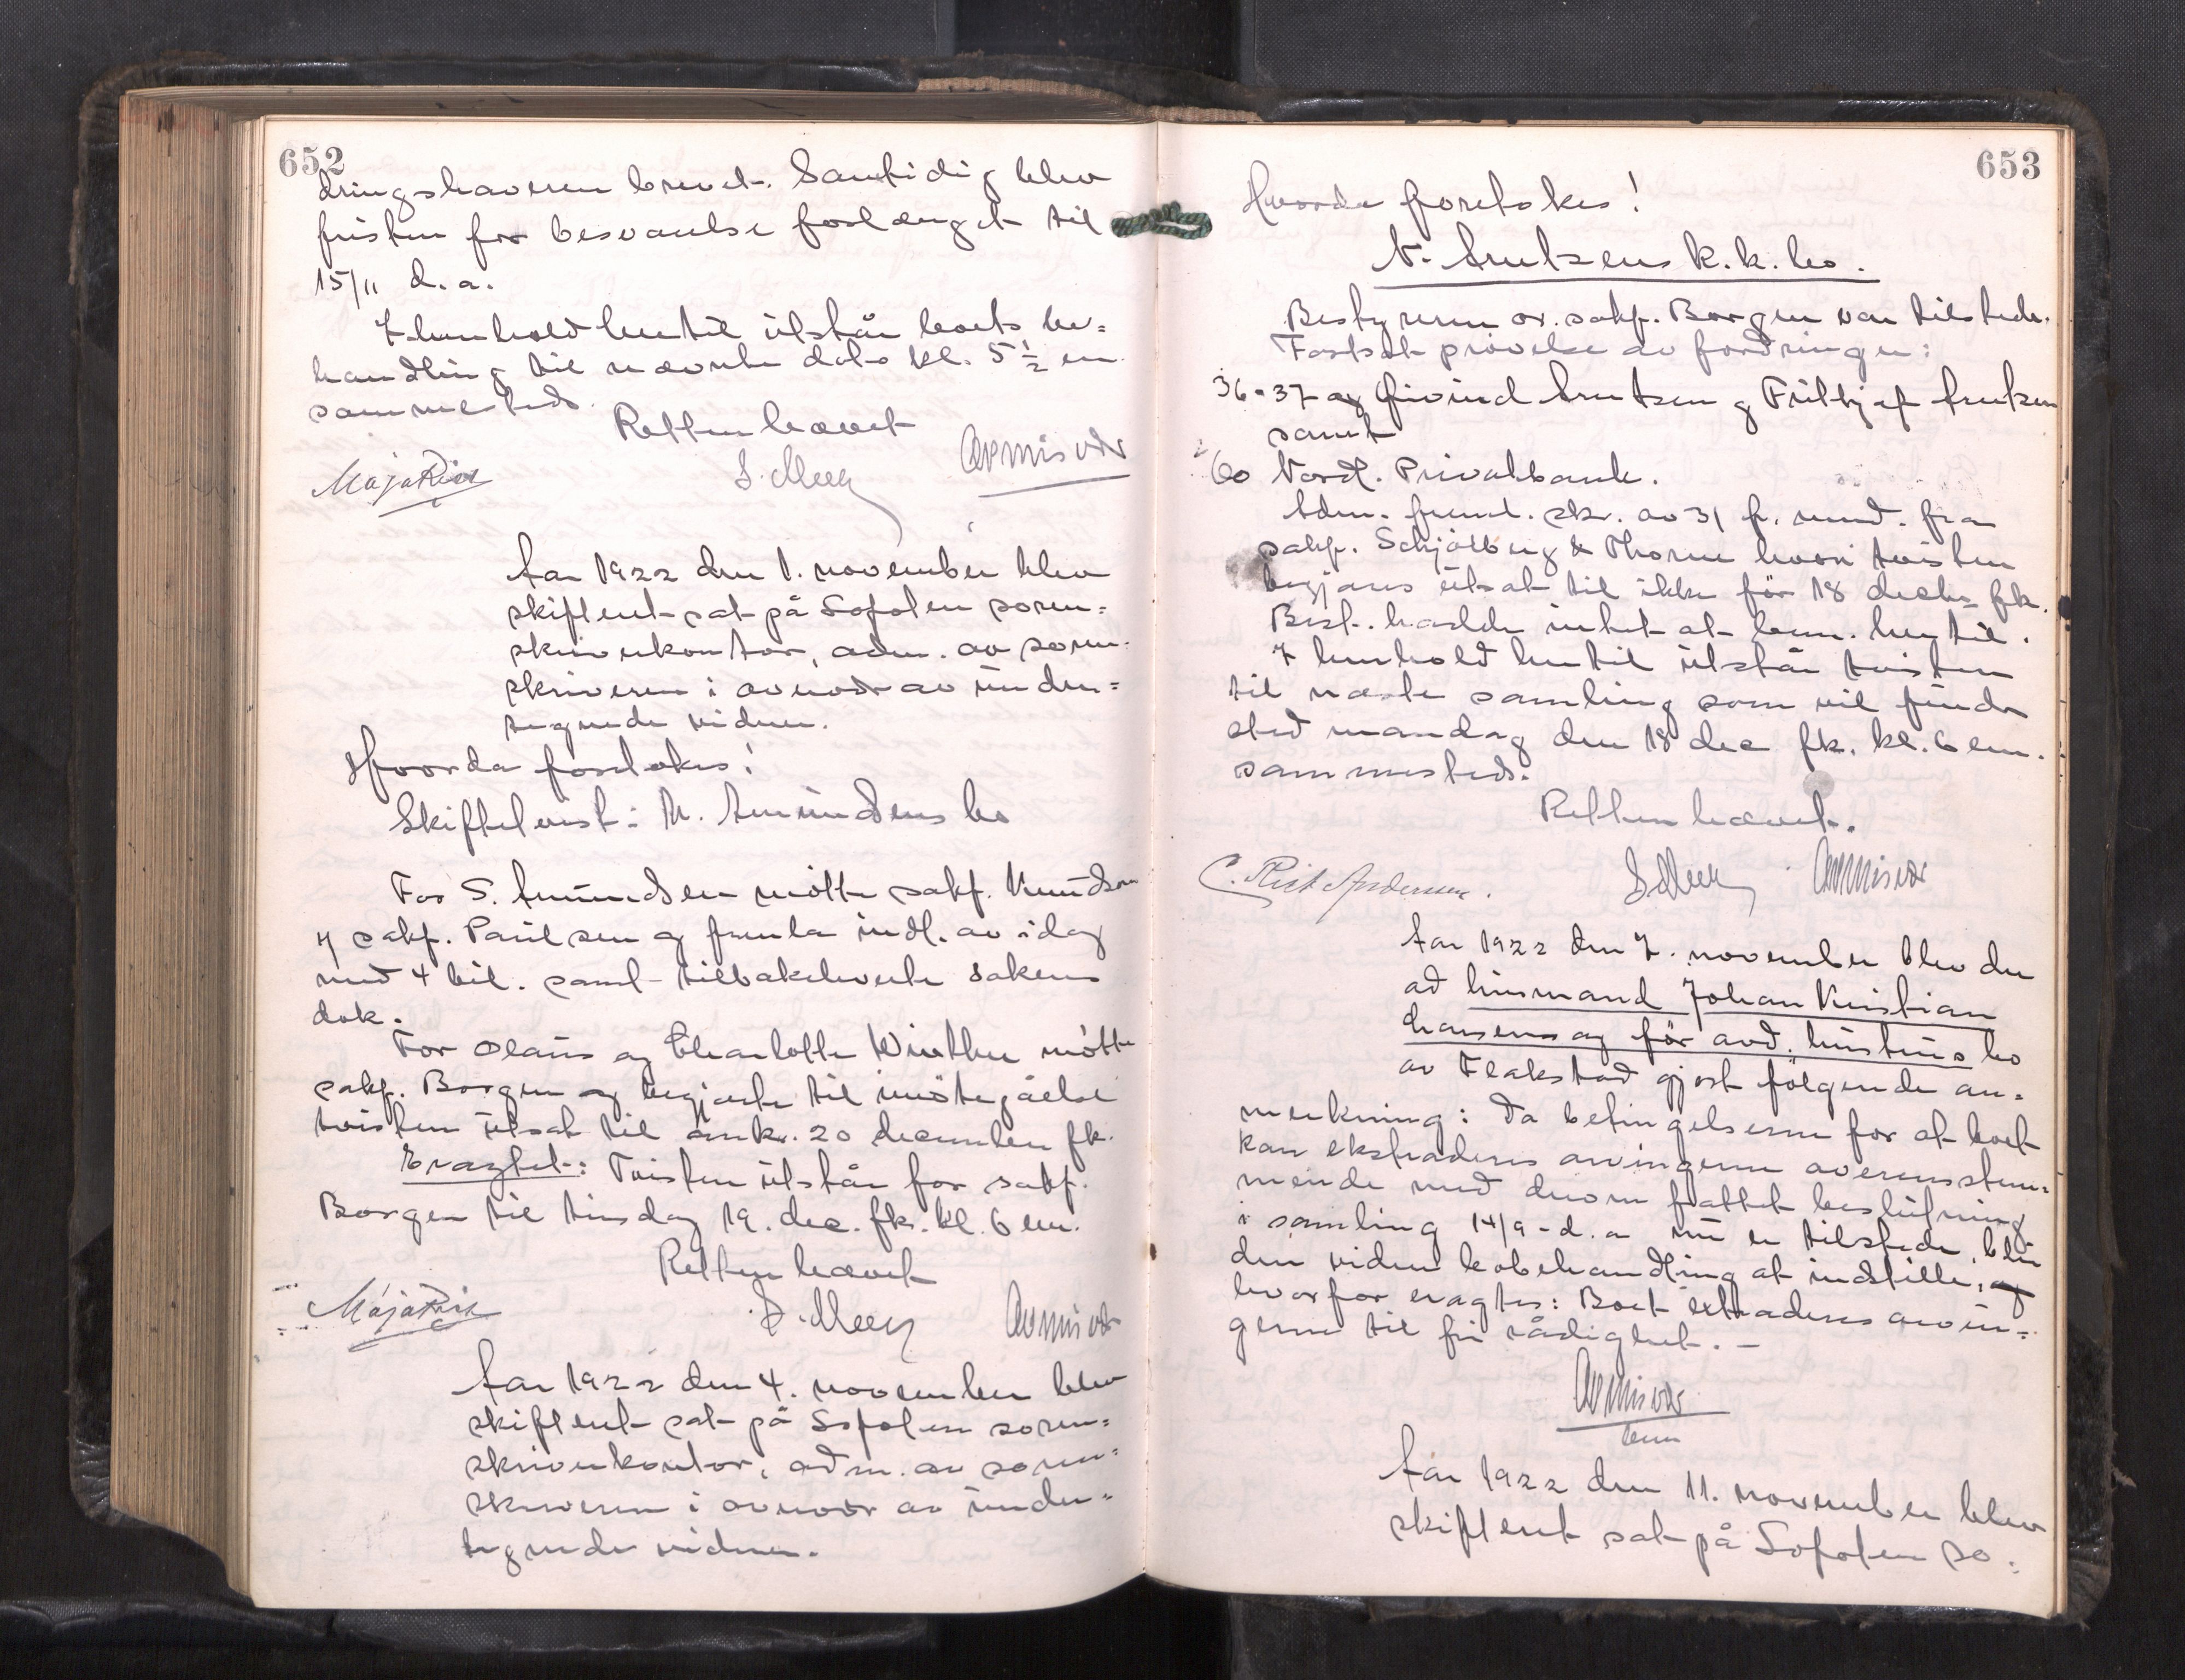 652
dringshaveren brevet. Samtidig blev
fristen for besvarelse forlænget til
15/11 d. a.
I henhold hertil utstår boets be=
handling til nævnte dato kl. 5 1/2 em.
sammesteds.
Retten hævet
Maja Riis
S. Meer
Aar 1922 den 1. november blev
skifteret sat på Lofoten soren=
skriverkontor, adm. av soren=
skriveren i overvær av under=
tegnede vidner.
Hvorda foretokes!
Skiftetvist: N. Amundsens bo
For S. Amundsen møtte sakf. Knudsen
v/ sakf. Paulsen og fremla indl. av idag
med 4 bil. samt tilbakeleverte sakens
dok.
For Olaus og Charlotte Winther møtte
sakf. Borgen og begjærte til imøtegåelse
tvisten utsat til omkr. 20 december fk.
Eragtet: Tvisten utstår for sakf.
Borgen til tirsdag 19. dec. fk. kl. 6 em.
Retten hævet
Maja Riis
S. Meer
Aar 1922 den 4. november blev
skifteret sat på Lofoten soren=
skriverkontor, adm. av soren=
skriveren i overvær av under=
tegnede vidner.
653
Hvorda foretokes!
N. Arntzens k.k. bo.
Bestyreren or. sakf. Borgen var tilstede.
Fortsat prøvelse av fordringer:
36-37 og Eivind Arntzen g Fritbjof Arntzen
samt
60 Nordl. Privatbank.
Adm. freml. skr. av 31 f. mnd. fra
sakf. Schjølberg & Thorne hvori tvisten
begjæres utsat til ikke før 18 decbr fk.
Best. hadde intet at bem. hertil.
I henhold hertil utstår tvisten
til næste samling som vil finde
sted mandag den 18 dec fk. kl. 6 em.
sammesteds.
Retten hævet.
C. Riis Andersen.
S. Meer
Aar 1922 den 7. november blev der
ad husmand Johan Kristian
Hansens og før avd. hustrus bo
av Flakstad gjort følgende an=
merkning: Da betingelserne for at boet
kan ekstraderes arvingerne overensstem=
mende med derom fattet beslutning
i samling 14/9 d. a nu er tilstede, blir
den videre bobehandling at indstille, og
hvorfor eragtes: Boet extraderes arvin=
gerne til fri rådighet. -
Aar 1922 den 11. november blev
skifteret sat på Lofoten so=